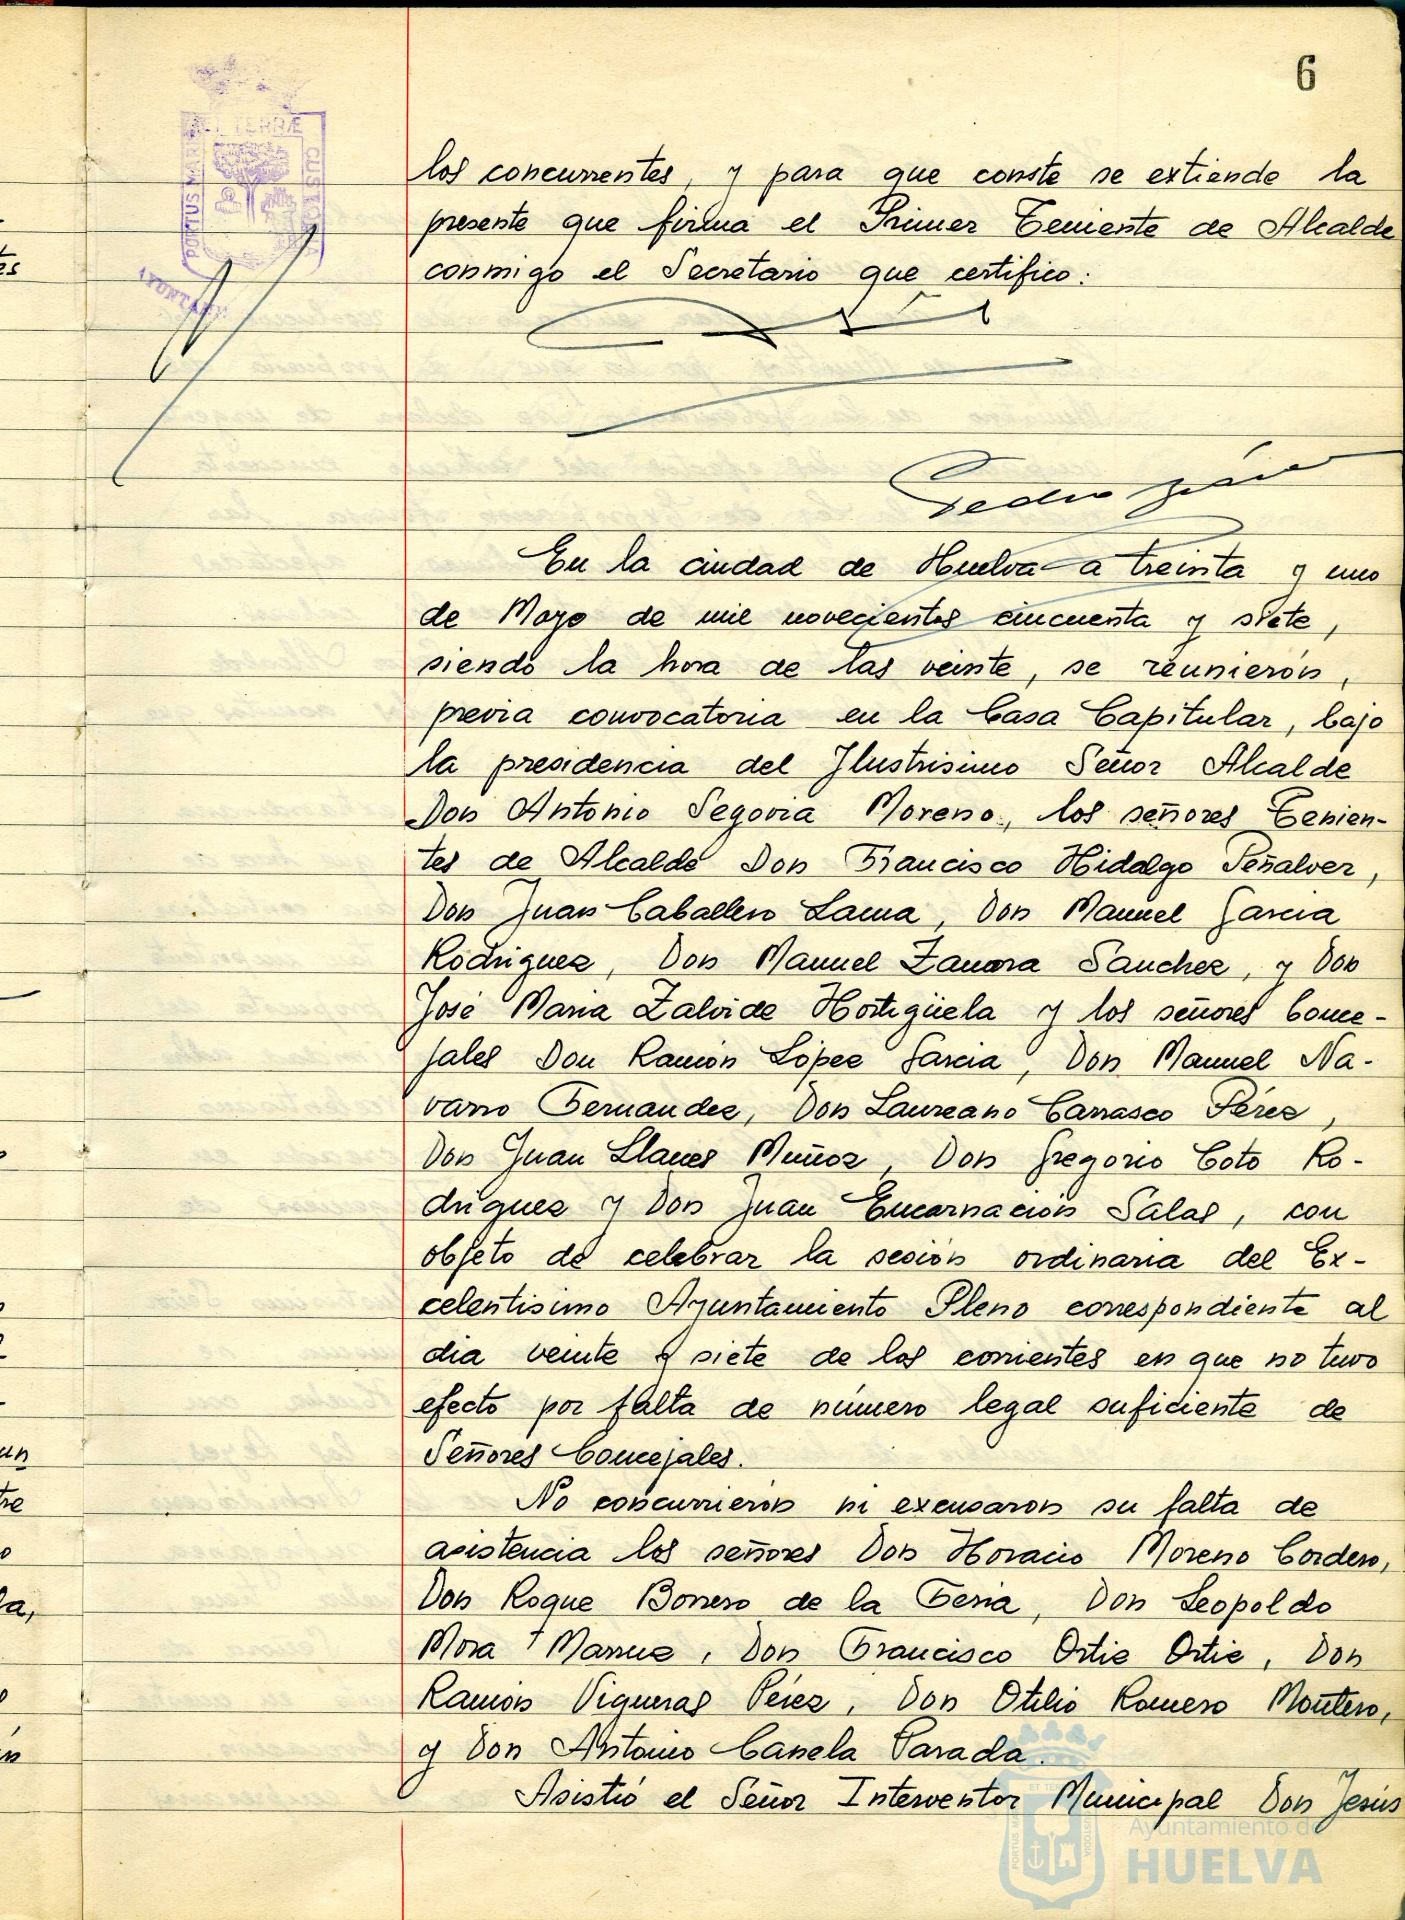 6
ET TERRÆ
PORTUS MARIS
CUSTODIA
AYUNTAM
los concurrentes, y para que conste se extiende la
presente que firma el Primer Teniente de Alcalde
conmigo el Secretario que certifico:
Pedro
En la ciudad de Huelva a treinta y uno
de Mayo de mil novecientos cincuenta y siete,
siendo la hora de las veinte, se reunierón,
previa convocatoria en la Casa Capitular, bajo
la presidencia del Ilustrisimo Señor Alcalde
Don Antonio Segovia Moreno, los señores Tenien-
tes de Alcalde Don Francisco Hidalgo Peñalver,
Don Juan Caballero Lama, Don Manuel Garcia
Rodriguez, Don Manuel Zamora Sanchez, y Don
José Maria Zalvide Hortigüela y los señores Conce-
jales Don Ramón López Garcia, Don Manuel Na-
varro Fernandez, Don Laureano Carrasco Pérez,
Don Juan Llanes Muñoz, Don Gregorio Coto Ro-
driguez y Don Juan Encarnación Salas, con
objeto de celebrar la sesión ordinaria del Ex-
celentisimo Ayuntamiento Pleno correspondiente al
dia veinte y siete de los corrientes en que no tuvo
efecto por falta de número legal suficiente de
Señores Concejales.
No concurrierón ni excusaron su falta de
asistencia los señores Don Horacio Moreno Cordero,
Don Roque Borrero de la Feria, Don Leopoldo
Mora Marruz, Don Francisco Ortiz Ortiz, Don
Ramón Vigueras Pérez, Don Otilio Romero Montero,
y Don Antonio Canela Parada.
Asistió el Señor Interventor Municipal Don Jesús
Ayuntamiento de
HUELVA